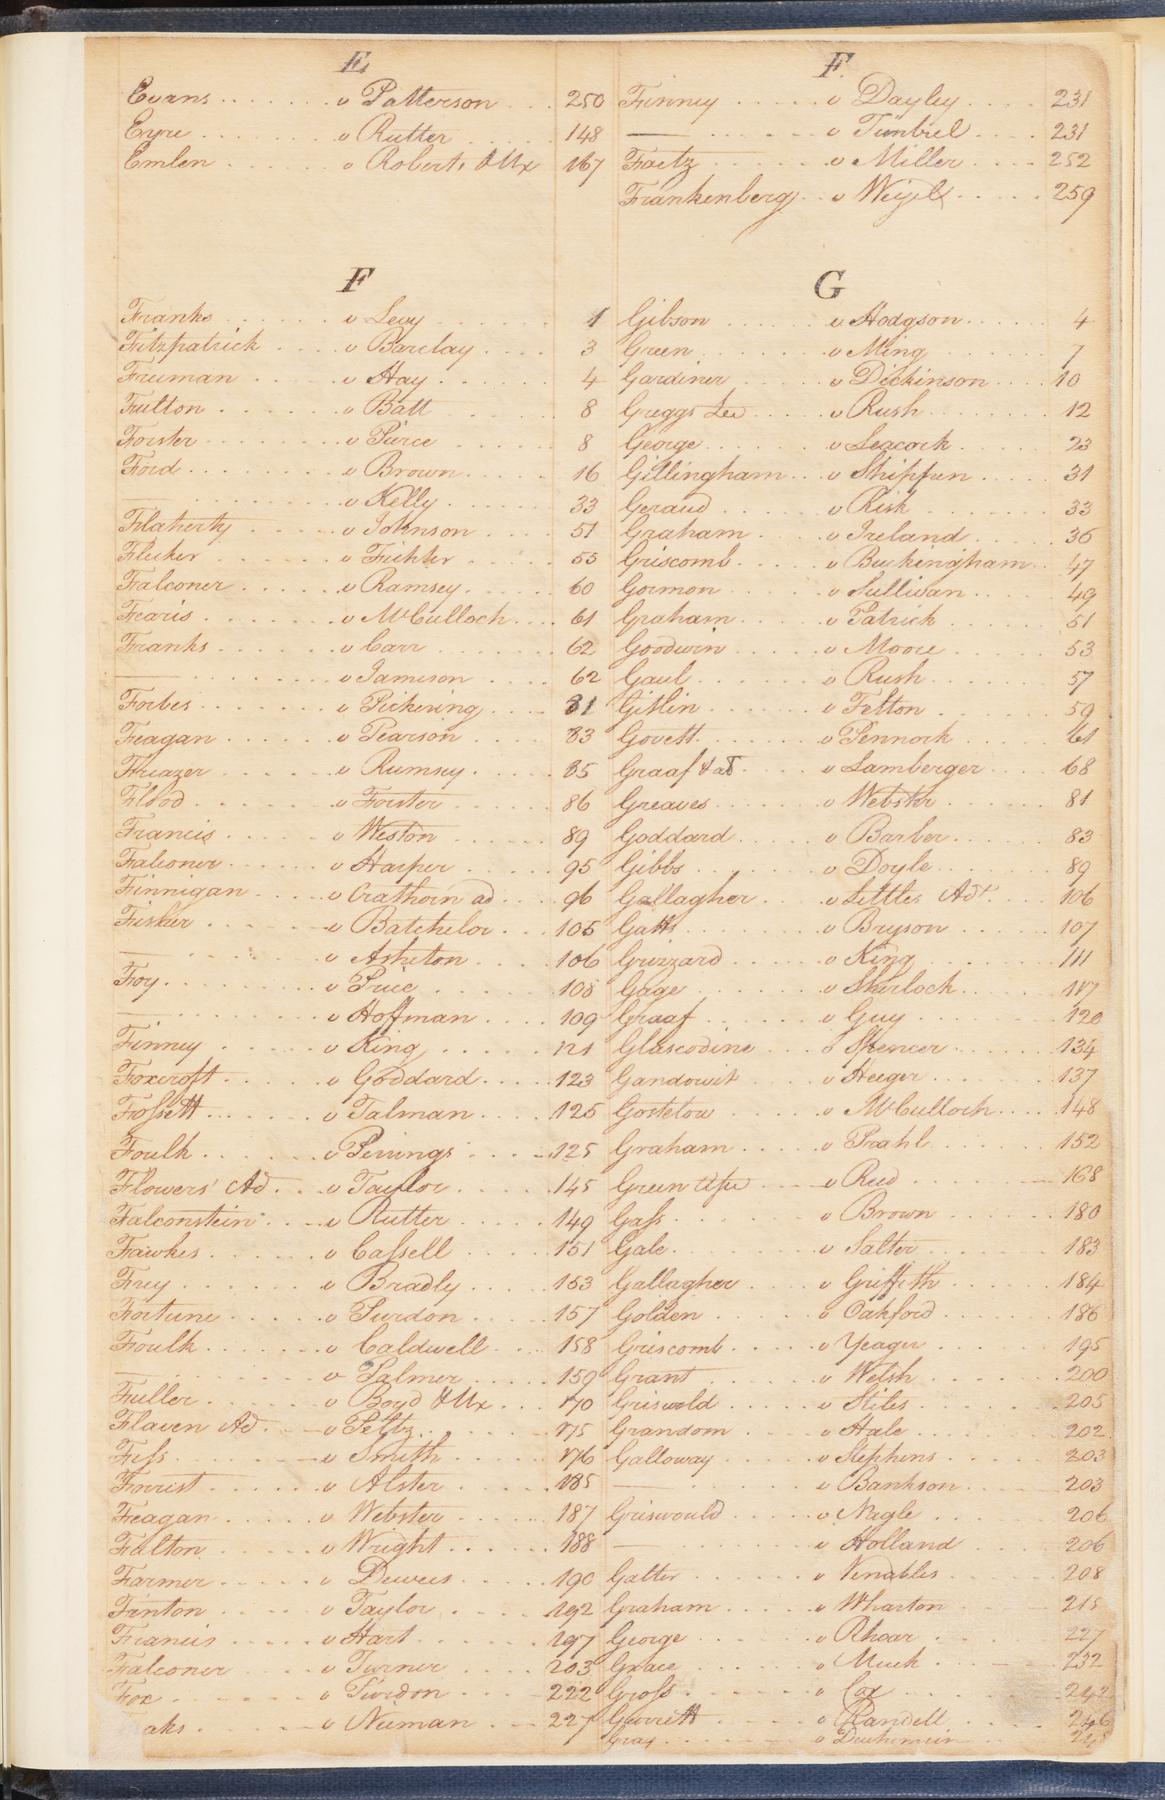 E
Evans v Patterson 250
Eyre v Rutter 148
Emlen v Roberts & Ux 167
F
Franks v Levy 1
Fitzpatrick v Barclay 3
Freeman v Hay 4
Fulton v Batt 8
Forster v Pierce 8
Ford v Brown 16
— v Kelly 33
Flaherty v Johnson 51
Fleeker v Feichter 55
Falconer v Ramsey 60
Fearis v McCulloch 61
Franks v Carr 62
— v Jameson 62
Forbes v Pickering 81
Feagan v Pearson 83
Freazer v Rumsey 85
Flood v Forster 86
Francis v Weston 89
Falconer v Harper 95
Finnigan v Crathorn ad 96
Fisher v Batchelor 105
— v Asheton 106
Foy v Price 108
— v Hoffman 109
Finney v King 121
Foxcroft v Goddard 123
Fossett v Talman 125
Foulk v Penings 125
Flowers' Ad v Taylor 145
Falconstein v Rutter 149
Fawkes v Cassell 151
Frey v Bradly 153
Fortune v Purdon 157
Foulk v Caldwell 158
— v Palmer 159
Fuller v Boyd & Ux 170
Flaven Ad v Peltz 175
Fess v Smith 176
Forrist v Alster 185
Feagan v Webster 187
Falton v Wright 188
Farmer v Dewees 190
Fenton v Taylor 192
Francis v Hart 197
Falconer v Turner 203
Fox v Purdon 222
aks v Neiman 227
F
Finney v Dayley 231
— v Timbrel 231
Faetz v Miller 252
Frankenberg v 259
G
Gibson v Hodgson 4
Green v Ming 7
Gardiner v Dickinson 10
Greggs Lee v Rush 12
George v Leacock 23
Gillingham v Shippen 31
Geraud v Risk 33
Graham v Ireland 36
Griscomb v Buckingham 47
Gormon v Sullivan 49
Graham v Patrick 51
Goodwin v Moore 53
Gaul v Rush 57
Gitlin v Felton 59
Govett v Pennock 61
Graaf & ad v Lamberger 68
Greaves v Webster 81
Goddard v Barber 83
Gibbs v Doyle 89
Gallagher v Littles Adr 106
Gatts v Bryson 107
Grizzard v King 111
Gage v Sherlock 117
Graaf v Guy 120
Glascodine v Spencer 134
Gandowit v Heeger 137
Gostelow v McCulloch 148
Graham v Prahl 152
Green v Reed 168
Gass v Brown 180
Gale v Salter 183
Gallagher v Griffith 184
Golden v Oakford 186
Griscomb v Yeager 195
Grant v Welsh 200
Griswold v Stiles 205
Grandom v Hale 202
Galloway v Stephens 203
— v Bankson 203
Griswould v Nagle 206
— v Holland 206
Galter v Venables 208
Graham v Wharton 215
George v Rhoar 227
Grace v Muck 232
Gross v Cox 242
Garrett v Randell 246
Gray v